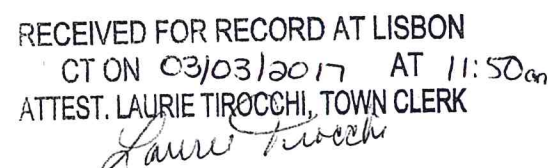 RECEIVED FOR RECORD AT LISBON
CT ON 03/03/2017 AT 11:50am
ATTEST. LAURIE TIROCCHI, TOWN CLERK
Laurie Tirocchi